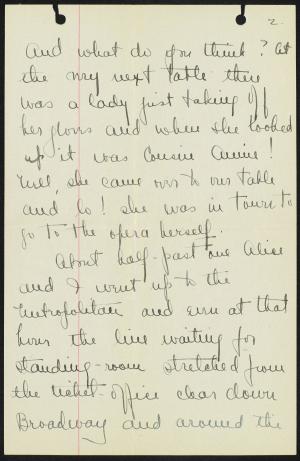 2.
And what do you think? At
the very next table there
was a lady just taking off
her gloves and when she looked
up it was Cousin Annie!
Well, she came over to our table
and lo! she was in town to
go to the opera herself.
About half-past one Alice
and I went up to the
Metropolitan and even at that
hour the line waiting for
standing-room stretched from
the ticket-office clear down
Broadway and around the